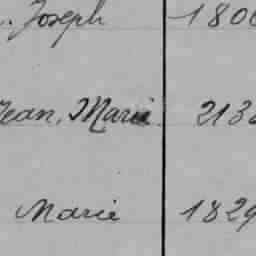 . Joseph 180
Jean, Marie 213
Marie 1829